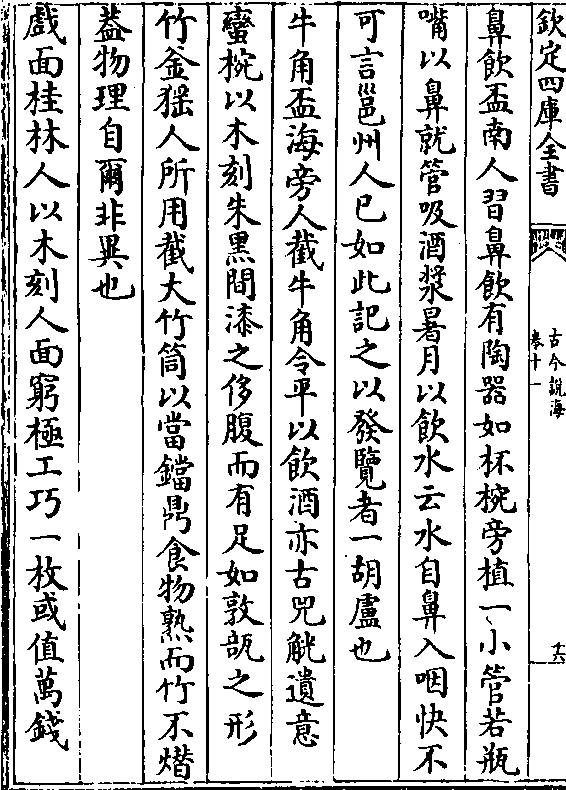 欽定四庫全書
古今說海
卷十一
十六
鼻飲盃南人習鼻飲有陶器如杯椀旁植一小管若瓶
嘴以鼻就管吸酒漿暑月以飲水云水自鼻入咽快不
可言邕州人已如此記之以發覽者一胡盧也
牛角盃海旁人截牛角令平以飲酒亦古兕觥遺意
蠻椀以木刻朱黑間漆之侈腹而有足如敦瓿之形
竹釜猺人所用截大竹筒以當鐺鼎食物熟而竹不熸
葢物理自爾非異也
戲面桂林人以木刻人面窮極工巧一枚或值萬錢